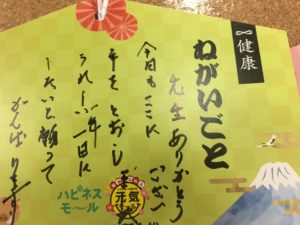 健康
ねがいごと
先生ありがとう
ござい
今日もここに
手をとおしま
うれしい年
一日に
したいと願って
がんばります
ハピネス
モール
元気